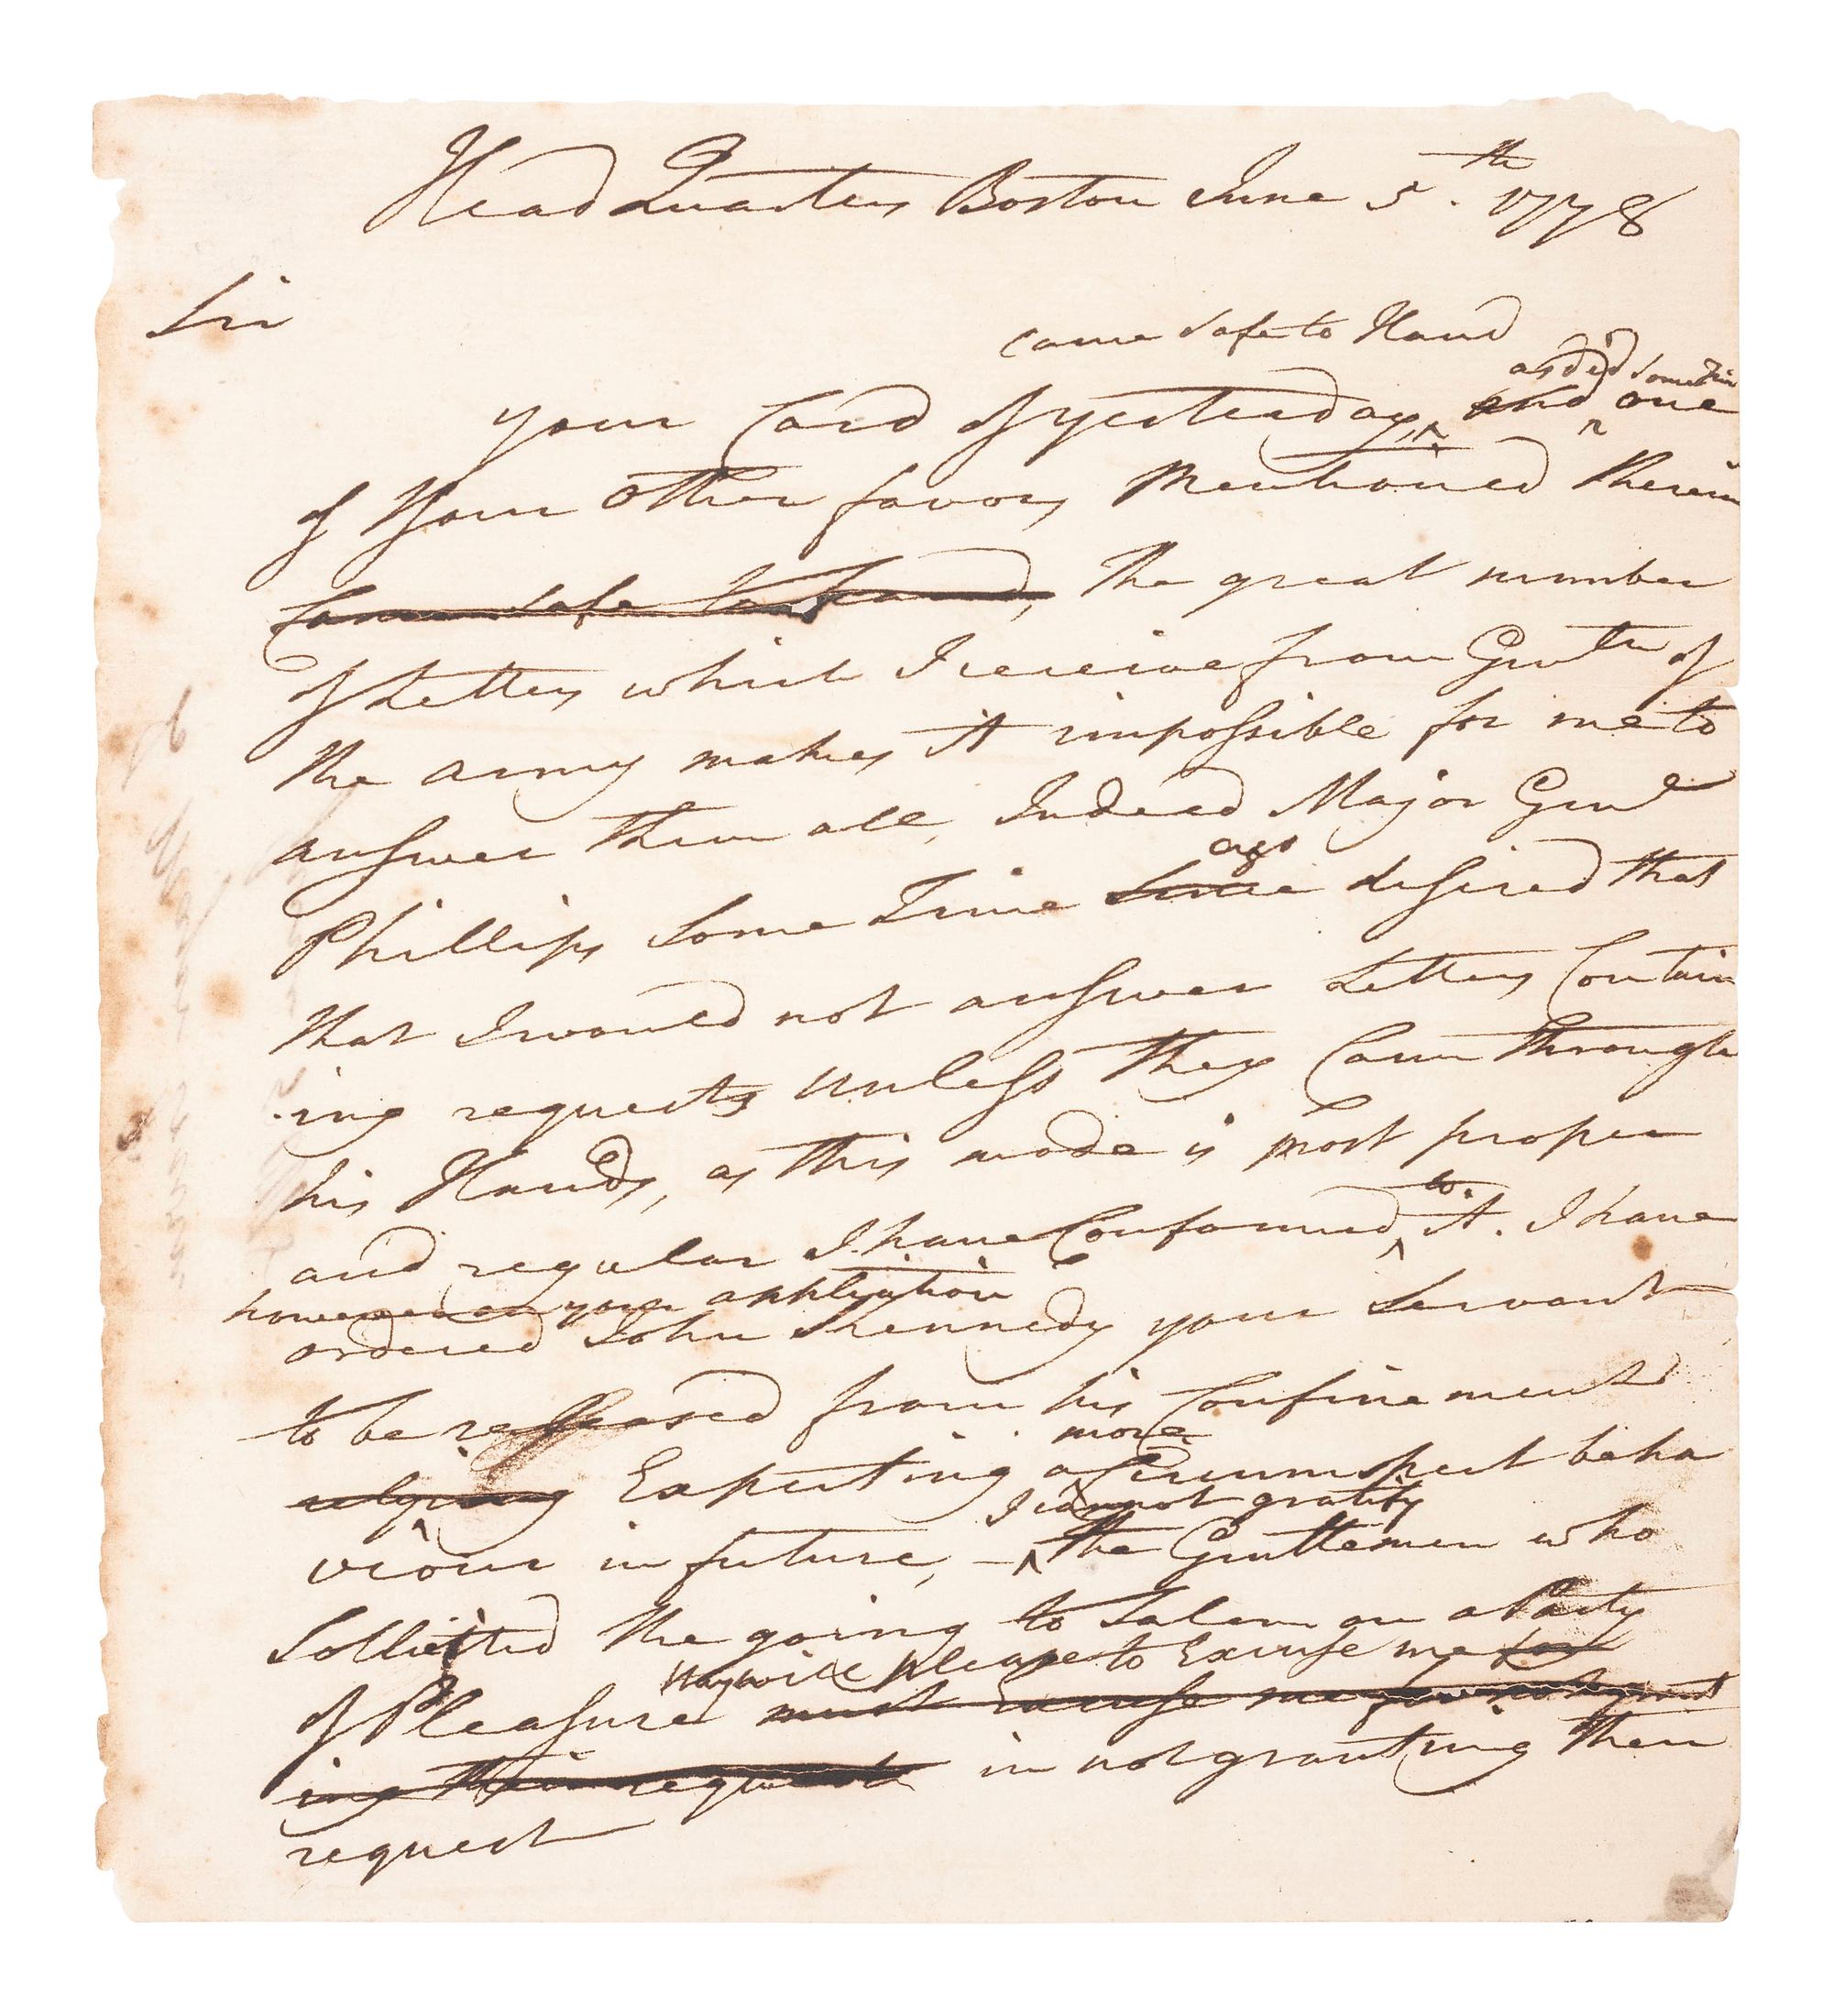 Head Quarters Boston June 5th. 1778
Sir
came safe to Hand
as did some time
your Card of yesterday, and one
of Your other favors Mentioned Therein
Came safe to hand, The great number
of Letters which I receive from Gentn of
the army makes it impossible for me to
answer them all, Indeed Major Genl
ago
Phillips some Time since desired that
that I would not answer Letters Contain
ing requests unless they Came Through
his Hands, as this mode is most proper
to
and regular I have Conformed it. I have
however on your application
ordered John Kennedy your Servant
to be released from his Confinement
more
relying Expecting a Circumspect beha
I cannot gratify
viour in future, - The Gentlemen who
Sollicitted the going to Salem on a Party
they will please to Excuse me for
of Pleasure must excuse me for not grant
ing their request in not granting their
request